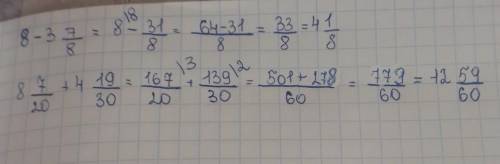 8 - 3 7/8 = 8\8 - 31/8 = 64-31/8 = 33/8 = 4 1/8
8 7/20 + 4 19/30 = 167/20\3 + 139/30\2 = 501+278/60 = 779/60 = 12 59/60